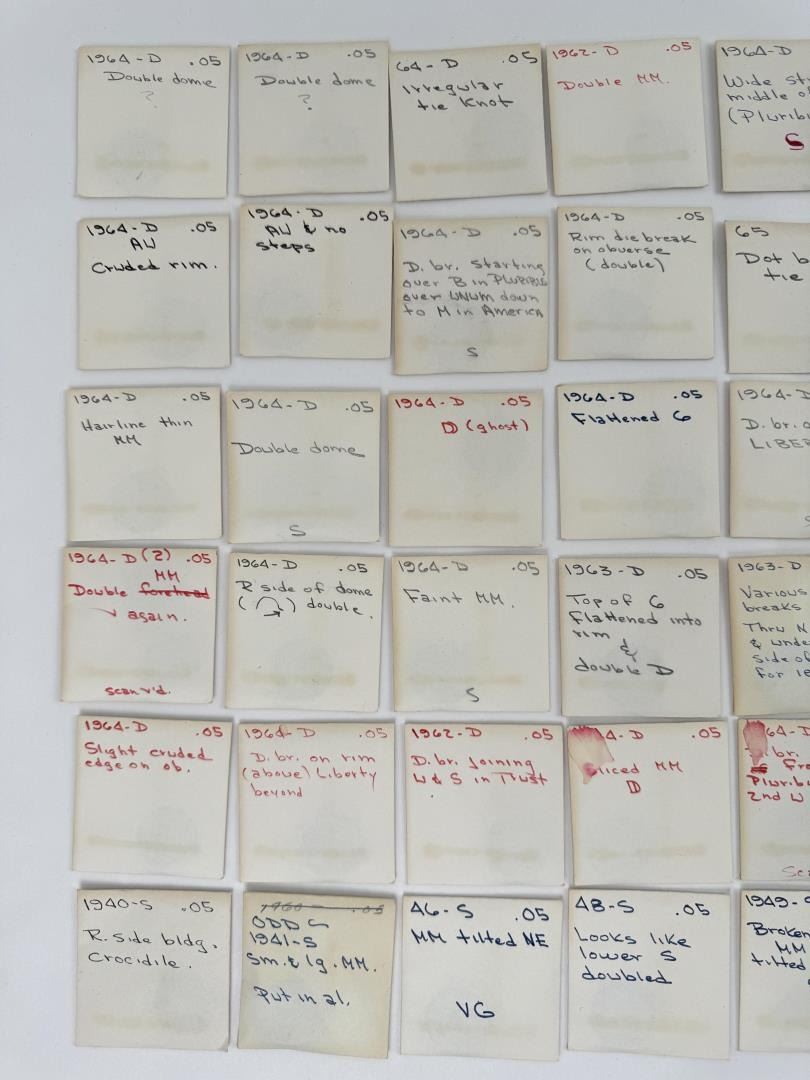 1964-D .05
Double dome
?
1964-D .05
Double dome
?
64-D .05
Irregular
tie Knot
1962-D .05
Double MM.
1964-D
Wide
middle
(Pluribu
S
1964-D .05
AU
Cruded rim.
1964-D .05
AU & no
steps
1964-D .05
D. br. starting
over B in PLURIBUS
over UNUM down
to M in America
S
1964-D .05
Rim die break
on obverse
(double)
65
Dot
tie
1964-D .05
Hairline thin
MM
1964-D .05
Double dome
S
1964-D .05
D (ghost)
1964-D .05
Flattened 6
1964-D
D. br.
LIBER
1964-D (2) .05
MM
Double forehead
again.
scan v'd.
1964-D .05
R side of dome
( ) double.
1964-D .05
Faint MM.
S
1963-D .05
Top of 6
flattened into
rim
&
double D
1963-D
Various
breaks
Thru N
& unde
side of
for 18
1964-D .05
Slight cruded
edge on ob.
1964-D .05
D. br. on rim
(above) Liberty
beyond
1962-D .05
D. br. joining
U & S in Trust
4-D .05
sliced MM
D
64-D
br.
Fro
Pluribu
2nd U
1940-S .05
R. side bldg.
Crocidile.
1960 .05
ODD
1941-S
Sm. & lg. MM.
Put in al.
46-S .05
MM tilted NE
VG
48-S .05
Looks like
lower S
doubled
1949-S
Broken
MM
tilted